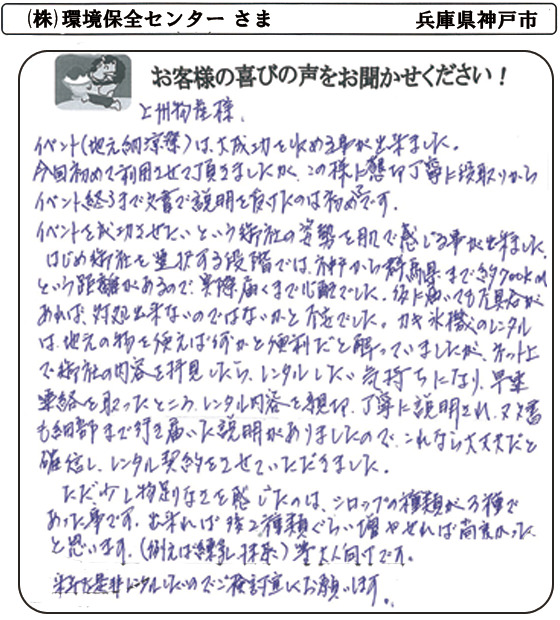 (株)環境保全センター さま 兵庫県神戸市
お客様の喜びの声をお聞かせください!
上州物産様、
イベント(地元納涼祭)は、大成功を収める事が出来ました。
今回初めて利用させて頂きましたが、この様に懇切丁寧に段取りから
イベント終るまで文書で説明を受けたのは初めてです。
イベントを成功させたいという御社の姿勢を肌で感じる事が出来ました。
はじめ御社を選択する段階では、神戸から群馬県まで約700km
という距離があるので、実際届くまで心配でした。仮に届いても不具合が
あれば、対処出来ないのではないかと不安でした。カキ氷機のレンタル
は、地元の物を使えば何かと便利だと解っていましたが、ネット上
で御社の内容を拝見したら、レンタルしたい気持ちになり、早速
連絡を取ったところ、レンタル内容を親切、丁寧に説明され、又文書
も細部まで行き届いた説明がありましたので、これなら大丈夫だと
確信し、レンタル契約をさせていただきました。
ただ少し物足りなさを感じたのは、シロップの種類が3種で
あった事です。出来れば後2種類ぐらい増やせれば尚良かった
と思います。(例えば練乳、抹茶)等大人向けです。
来年も是非レンタルしたいのでご検討宜しくお願いします。